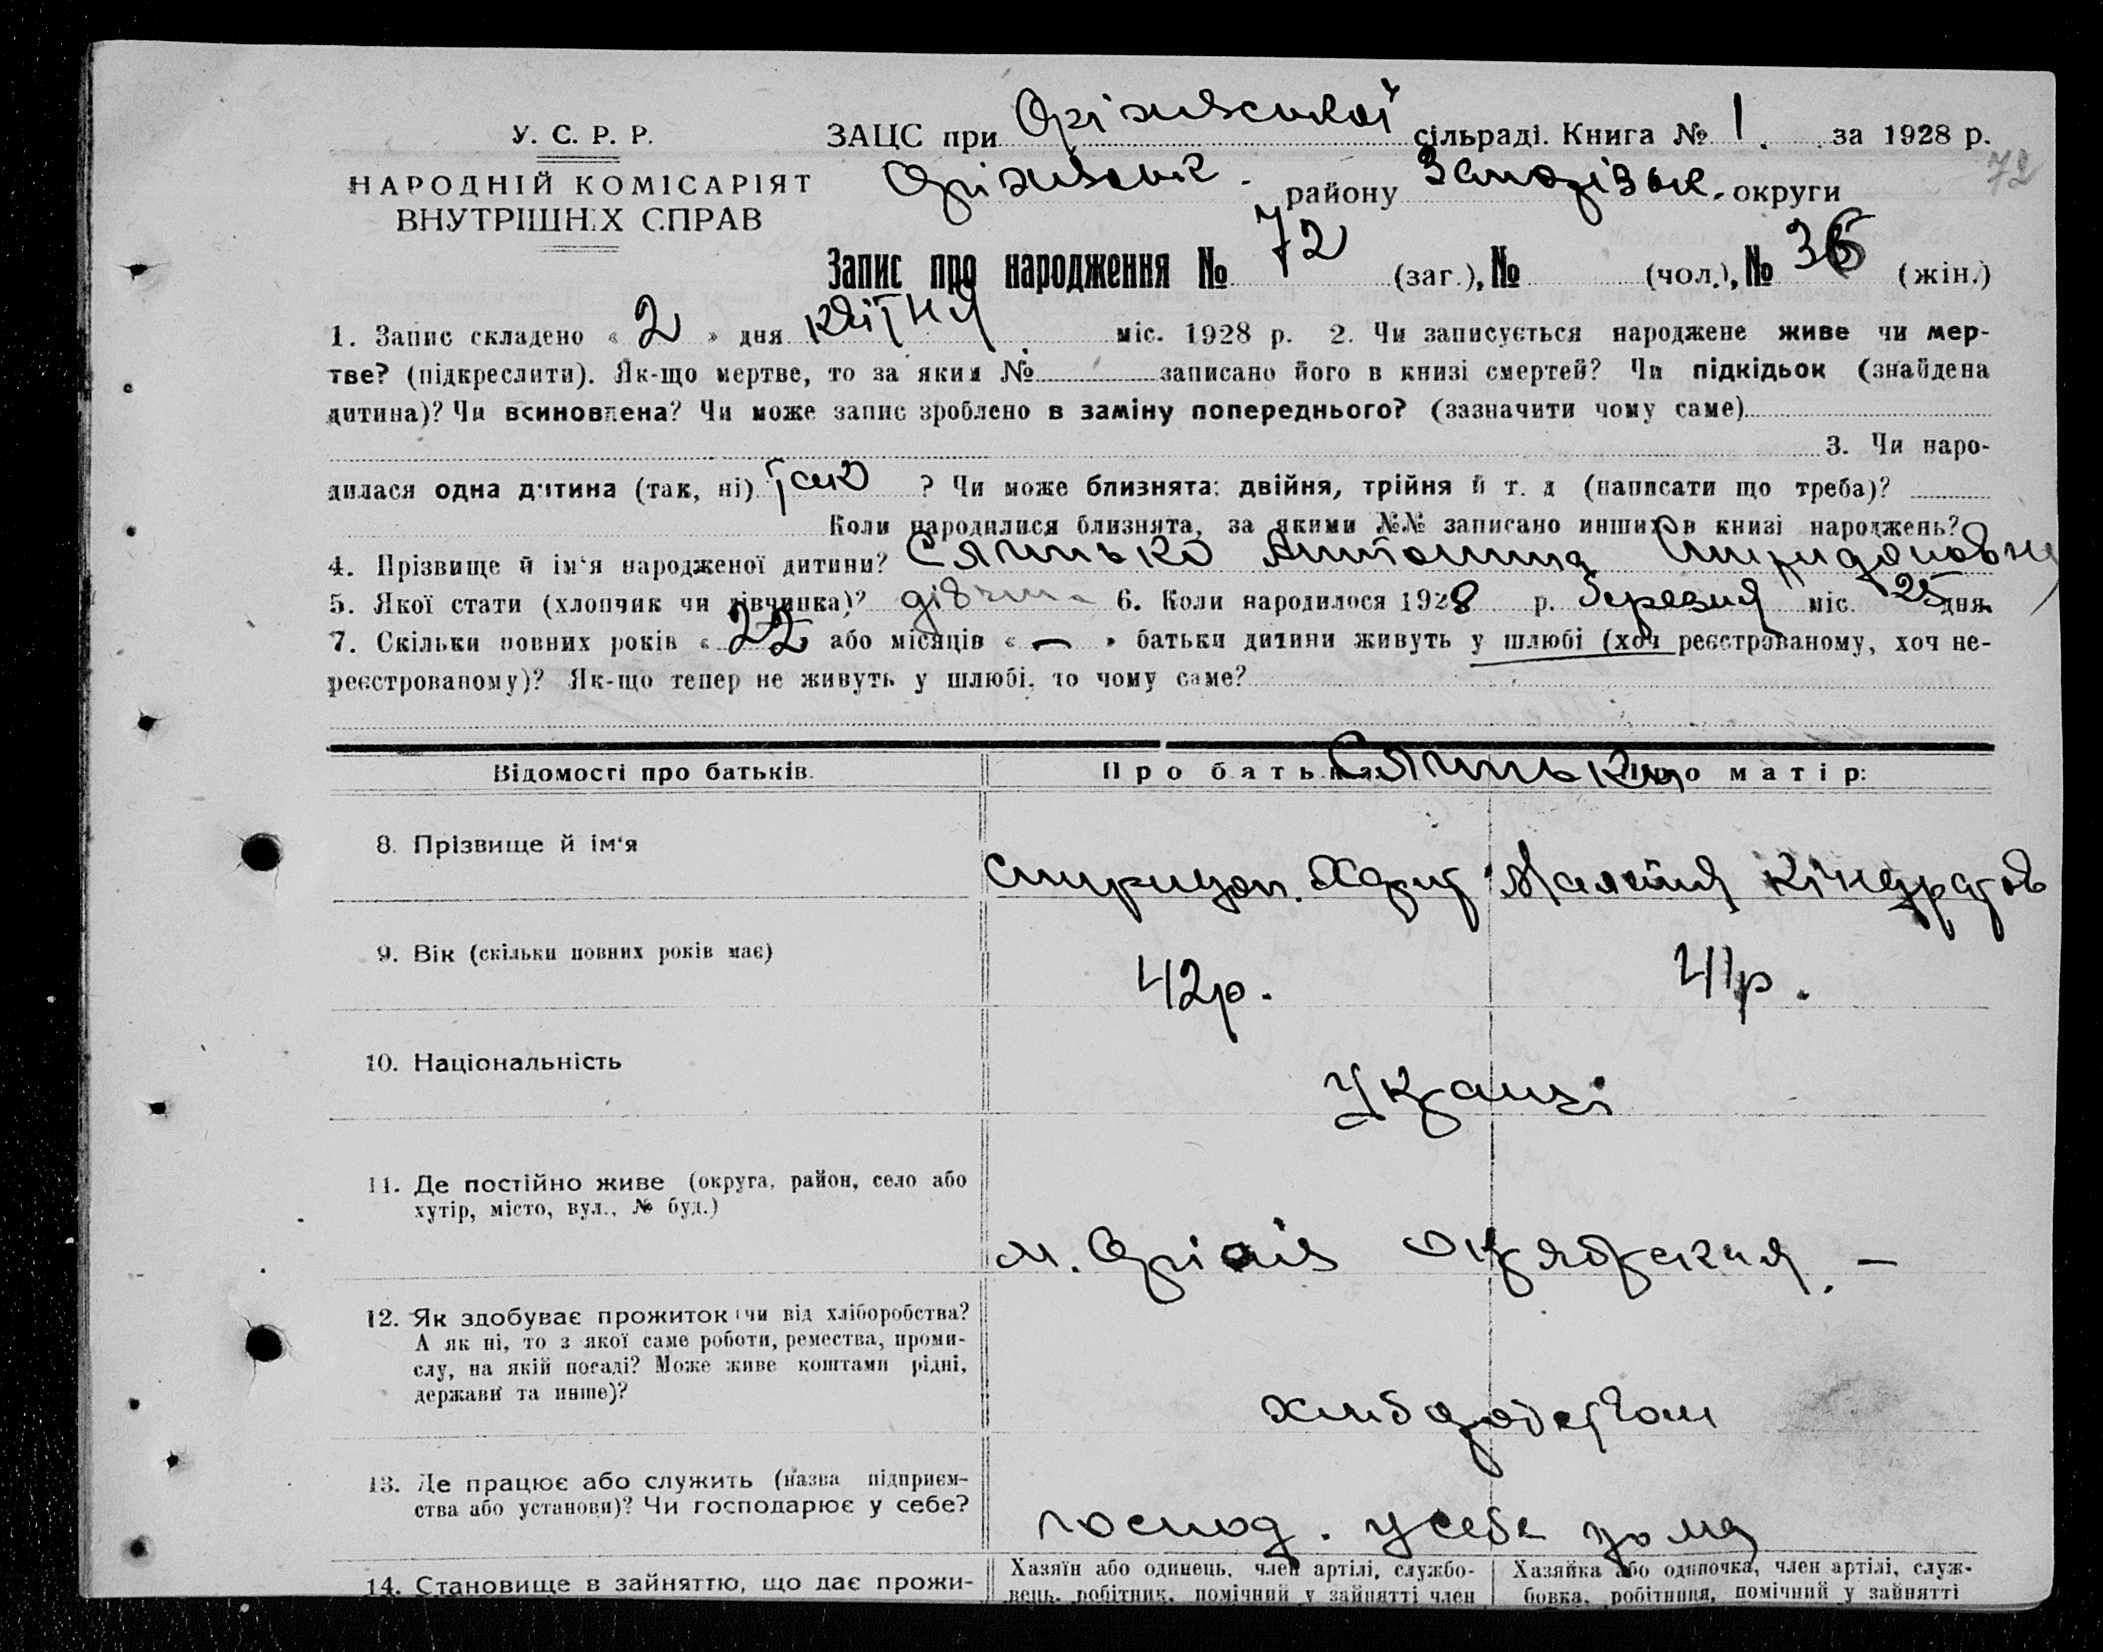 У. С. Р. Р.
НАРОДНІЙ КОМІСАРІЯТ
ВНУТРІШНІХ СПРАВ
ЗАЦС при Оріхівської сільраді. Книга № 1. за 1928 р.
72
Оріхівськ. району Запорізьк. округи
Запис про народження № 72 (заг.), № (чол.), № 36 (жін.)
1. Запис складено « 2 » дня квітня міс. 1928 р. 2. Чи записується народжене живе чи мер-
тве? (підкреслити). Як-що мертве, то за яким № записано його в книзі смертей? Чи підкідьок (знайдена
дитина)? Чи всиновлена? Чи може запис зроблено в заміну попереднього? (зазначити чому саме)
3. Чи наро-
дилася одна дитина (так, ні) так ? Чи може близнята: двійня, трійня й т. д (написати що треба)?
Коли народилися близнята, за якими №№ записано инших в книзі народжень?
4. Прізвище й ім'я народженої дитини? Антонина
5. Якої стати (хлопчик чи дівчинка)? дівчина 6. Коли народилося 1928 р. березня міс. 25 дня.
7. Скільки повних років « 22 або місяців « — » батьки дитини живуть у шлюбі (хоч реєстрованому, хоч не-
реєстрованому)? Як-що тепер не живуть у шлюбі, то чому саме?
Відомості про батьків. Про батька: Про матір:
8. Прізвище й ім'я
9. Вік (скільки повних років має) 42р. 41р.
10. Національність Украинці
11. Де постійно живе (округа, район, село або
хутір, місто, вул., № буд.)
м. Оріхів
12. Як здобуває прожиток (чи від хліборобства?
А як ні, то з якої саме роботи, ремества, проми-
слу, на якій посаді? Може живе коштами рідні,
держави та инше)?
13. Де працює або служить (назва підприєм-
ства або установи)? Чи господарює у себе?
господ. у себе дома
14. Становище в зайняттю, що дає прожи-
Хазяїн або одинець, член артілі, службо-
вець, робітник, помічний у зайнятті член
Хазяйка або одиночка, член артілі, служ-
бовка, робітниця, помічний у зайнятті